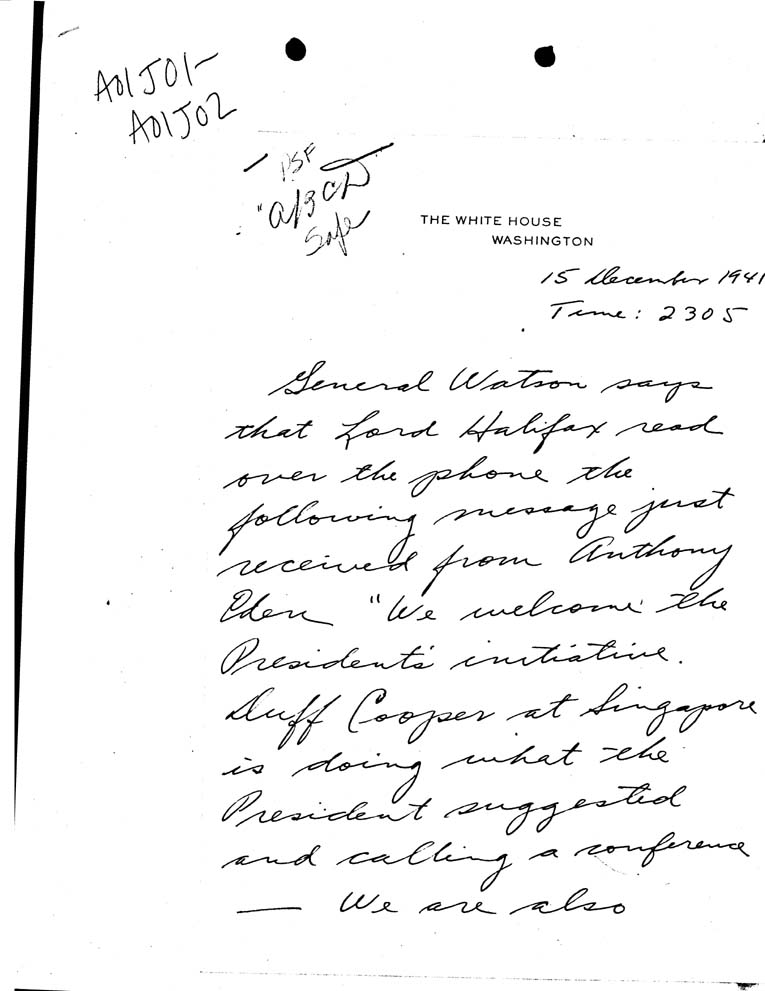 A01J01-
A01J02
PSF
"ABCD
Safe
THE WHITE HOUSE
WASHINGTON
15 December 1941
Time: 2305
General Watson says
that Lord Halifax read
over the phone the
following message just
received from Anthony
Eden "We welcome the
President's initiative.
Duff Cooper at Singapore
is doing what the
President suggested
and calling a conference
— We are also